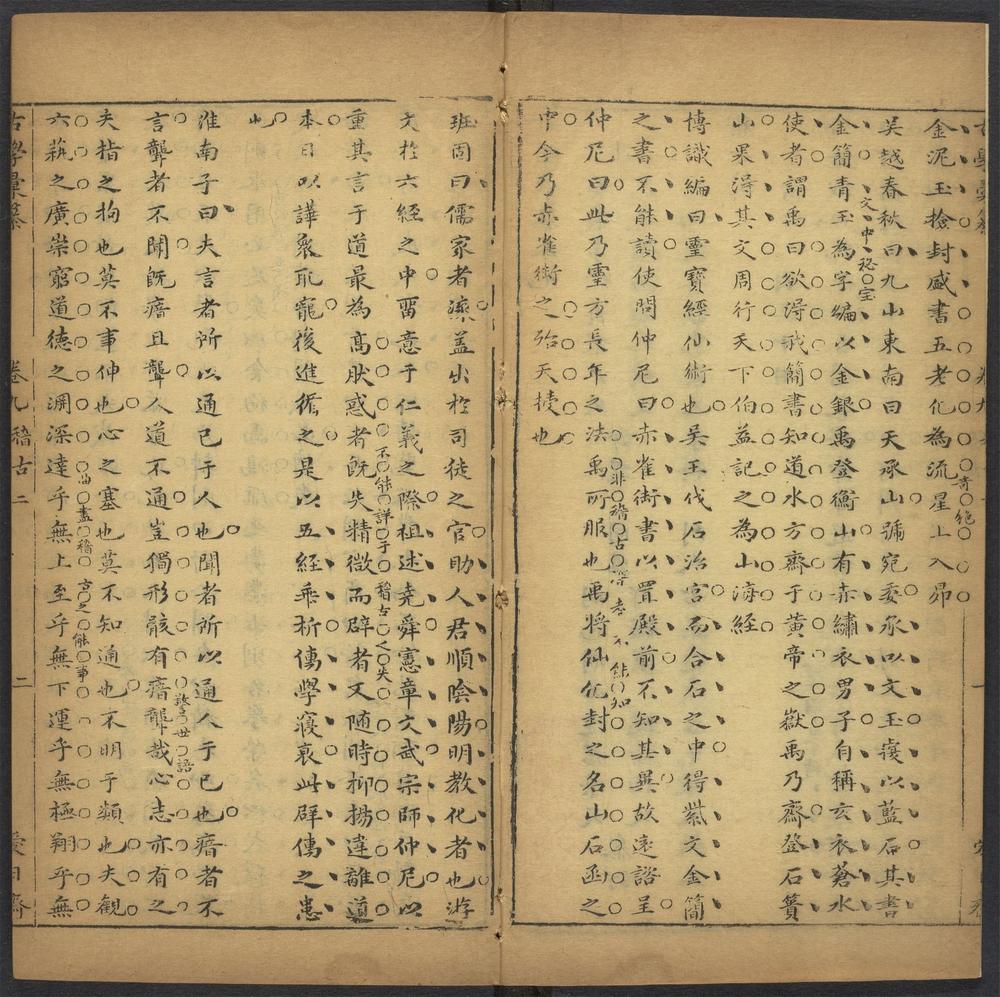 金泥玉撿封盛書五老化為流星上入昴
奇絕
吳越春秋曰九山東南曰天承山號宛委承以文玉覆以藍石其書
金簡青玉為字編以金銀禹登衡山有赤繡衣男子自稱玄衣蒼水
文中秘宝
使者謂禹曰欲得我簡書知道水方齋于黃帝之嶽禹乃齋登石簣
山果得其文周行天下伯益記之為山海經
博識編曰靈寶經仙術也吳王伐石治宮而合石之中得紫文金簡
之書不能讀使問仲尼曰赤雀銜書以置殿前不知其異故遠諮呈
非稽古深者不能知
仲尼曰此乃靈方長年之法禹所服也禹將仙化封之名山石函之
中今乃赤雀銜之殆天授也
班固曰儒家者流蓋出於司徒之官助人君順陰陽明教化者也游
文於六經之中畱意于仁義之際祖述堯舜憲章文武宗師仲尼以
不能詳于稽古之失
重其言于道最為高肰惑者旣失精微而辟者又随時抑揚違離道
本日以譁衆取寵後進循之是以五經乖析儒學寢衰此辟儒之患
也
淮南子曰夫言者所以通已于人也聞者所以通人于已也瘖者不
言聾者不聞旣瘖且聾人道不通豈獨形骸有瘖聾哉心志亦有之
警世語
夫指之拘也莫不事伸也心之塞也莫不知通也不明于類也夫觀
六蓺之廣崇窮道德之淵深達乎無上至乎無下運乎無極翔乎無
盡稽古之能事
古學彙纂 卷九 稽古 二 二 愛日齋